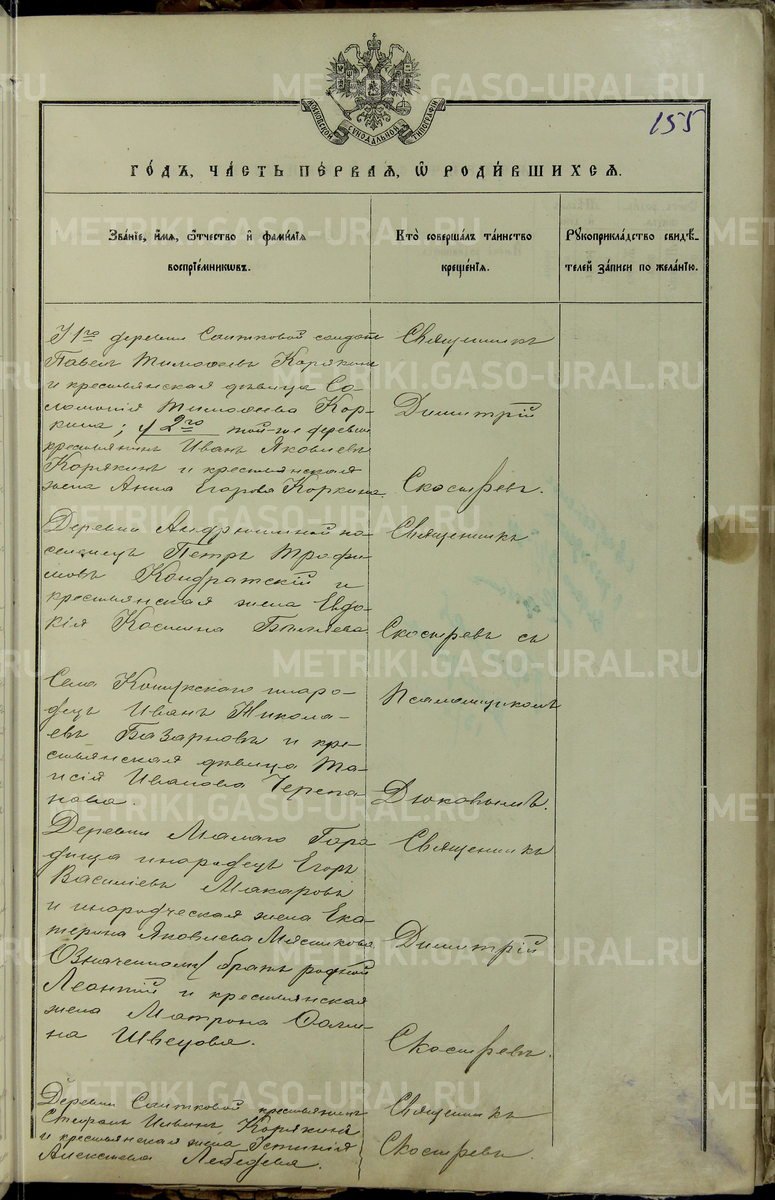 155
МОСКОВСКОЙ СѴНОДАЛЬНОЙ ТИПОГРАФІИ
ГОДЪ, ЧАСТЬ ПЕРВАЯ, Ѿ РОДИВШИХСЯ.
Званіе, имя, отчество и фамилія
воспріемниковъ.
Кто совершалъ таинство
крещенія.
Рукоприкладство свидѣ-
телей записи по желанію.
У 1го деревни Сашковой солдатъ
Павелъ Тимоѳеевъ Корякинъ
и крестьянская дѣвица Со-
ломонія Тимоѳеева Кор-
кина; у 2го той-же деревни
крестьянинъ Иванъ Яковлевъ
Корякинъ и крестьянская
жена Анна Егорова Коркина.
Священникъ
Димитрій
Скосыревъ.
Деревни Андрюшиной по-
селенецъ Петръ Трофи-
мовъ Кондратскій и
крестьянская жена Евдо-
кія Космина Бѣляева.
Священникъ
Скосыревъ съ
Села иноро-
децъ Иванъ Никола-
евъ Базарновъ и кре-
стьянская дѣвица Та-
исія Иванова Черепа-
нова.
Псаломщикомъ
Дюковымъ.
Деревни Малаго Горо-
дища инородецъ Егоръ
Василіевъ Макаровъ
и инородческая жена Ека-
терина Яковлева Мясникова
Священникъ
Димитрій
Означенному братъ родной
Леонтій и крестьянская
жена Матрона
на Швецова.
Скосыревъ.
Деревни Сашковой крестьянинъ
Стефанъ Ильинъ Корякинъ
и крестьянская жена Устинія
Алексѣева Лебедева.
Священникъ
Скосыревъ.
METRIKI.GASO-URAL.RU